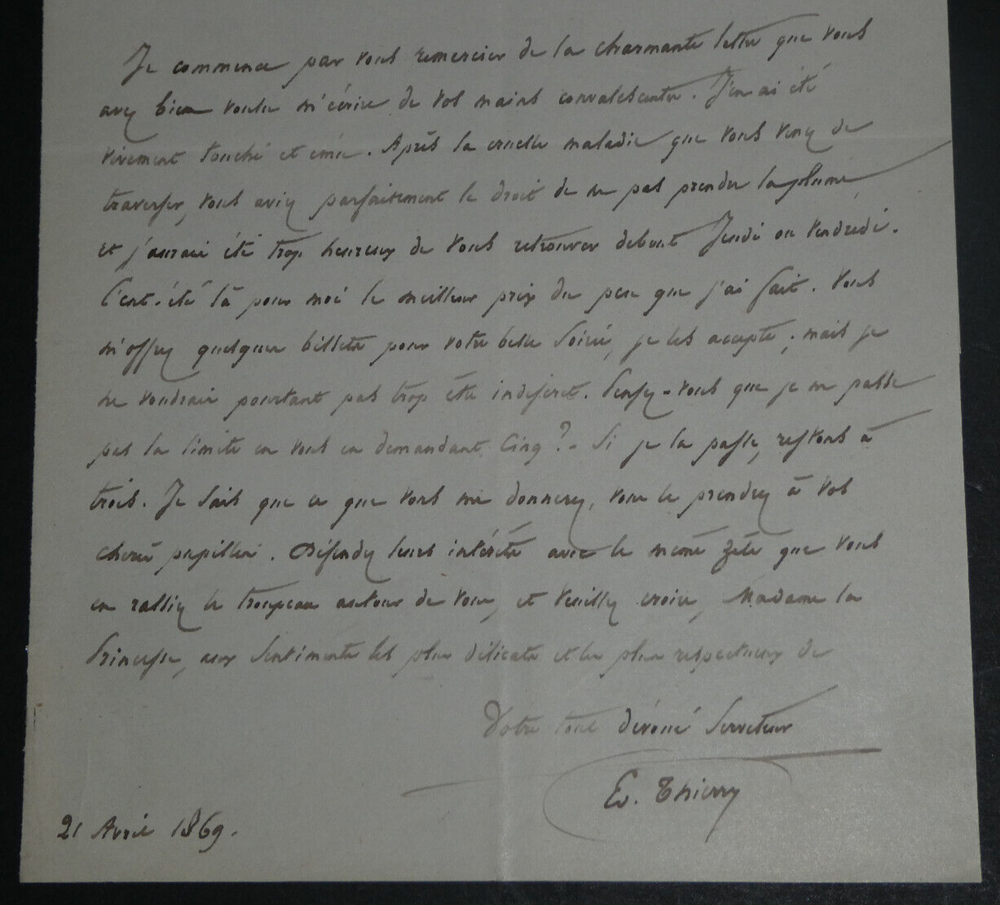 Je commence par vous remercier de la charmante lettre que vous
avez bien voulu m'écrire de vos mains convalescentes. J'en ai été
vivement touché et ému. Après la cruelle maladie que vous venez de
traverser, vous aviez parfaitement le droit de ne pas prendre la plume
et j'aurais été trop heureux de vous retrouver debout Jeudi ou Vendredi.
C'eut-été là pour moi le meilleur prix du peu que j'ai fait. Vous
m'offrez quelques billets pour votre belle soirée, je les accepte ; mais je
ne voudrais pourtant pas trop être indiscret. Pensez-vous que je ne passe
pas la limite en vous en demandant cinq ? - Si je la passe, restons à
trois. Je sais que ce que vous me donnerez, vous le prendrez à vos
chères pupilles. Défendez leurs intérêts avec le même zèle que vous
en ralliez le troupeau autour de vous, et veuillez croire, Madame la
Princesse, aux sentiments les plus délicats et les plus respectueux de
Votre tout dévoué serviteur
Ed. Thierry
21 Avril 1869.